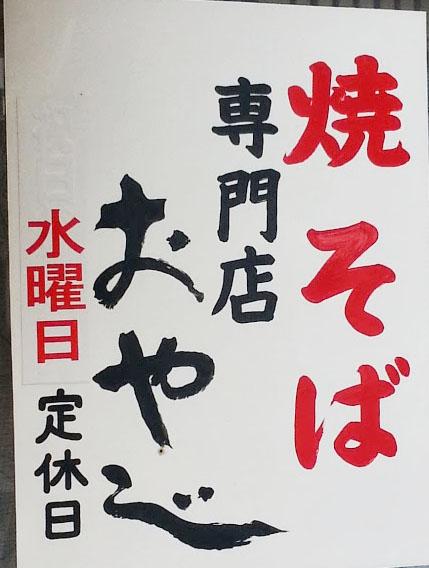 焼そば
専門店
おやじ
水曜日
定休日